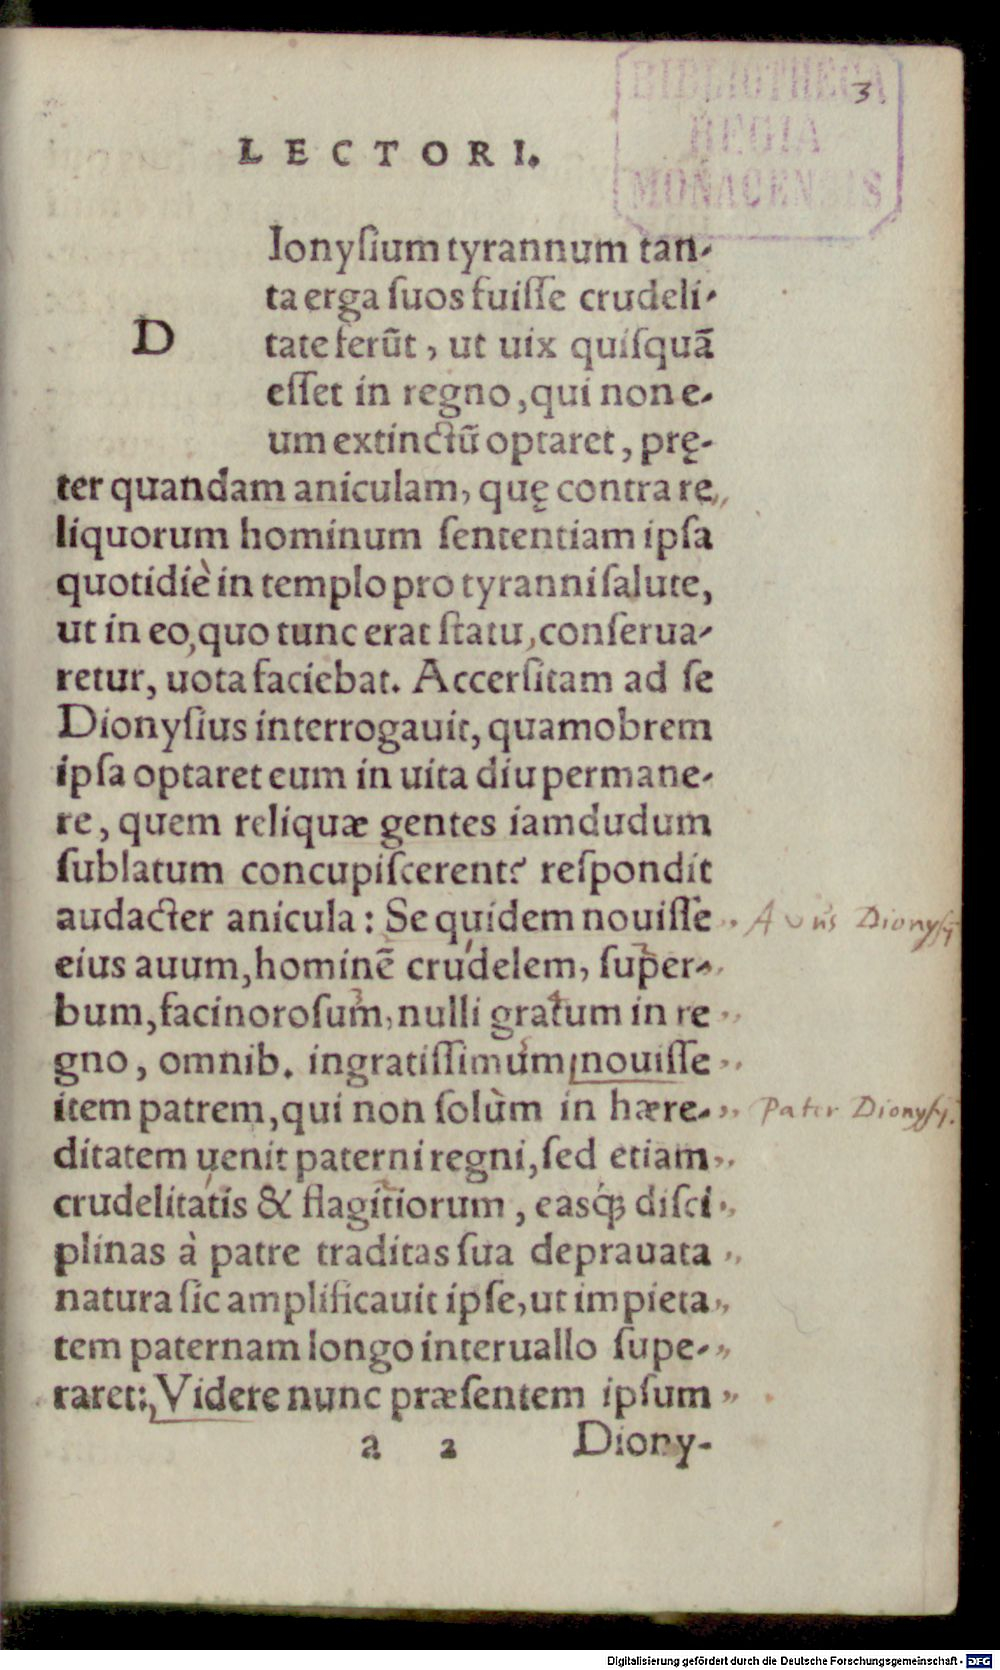 3
BIBLIOTHECA
REGIA
MONACENSIS
LECTORI.
D
Ionysium tyrannum tan-
ta erga suos fuisse crudeli-
tate ferũt, ut uix quisquã
esset in regno, qui non e-
um extinctũ optaret, prę-
ter quandam aniculam, quę contra re„
liquorum hominum sententiam ipsa
quotidiè in templo pro tyranni salute,
ut in eo, quo tunc erat statu, conserua-
retur, uota faciebat. Accersitam ad se
Dionysius interrogauit, quamobrem
ipsa optaret eum in uita diu permane-
re, quem reliquæ gentes iamdudum
sublatum concupiscerent? respondit
audacter anicula: Se quidem nouisse
Avus Dionysij
eius auum, hominẽ crudelem, super-
bum, facinorosum, nulli gratum in re
gno, omnib. ingratissimum, nouisse
item patrem, qui non solùm in hære-
Pater Dionysij.
ditatem uenit paterni regni, sed etiam
crudelitatis & flagitiorum, easq́ꝫ disci
plinas à patre traditas sua deprauata
natura sic amplificauit ipse, ut impieta
tem paternam longo interuallo supe-
raret: Videre nunc præsentem ipsum
a 2 Diony-
Digitalisierung gefördert durch die Deutsche Forschungsgemeinschaft - DFG